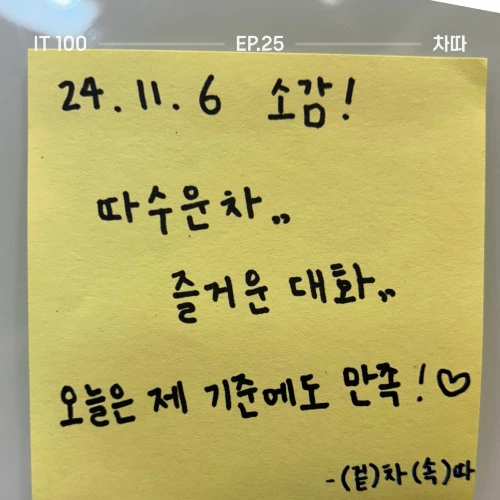 IT 100 EP.25 차따
24.11.6 소감!
따수운차,,
즐거운 대화,,
오늘은 제 기준에도 만족!♡
-(겉)차(속)따